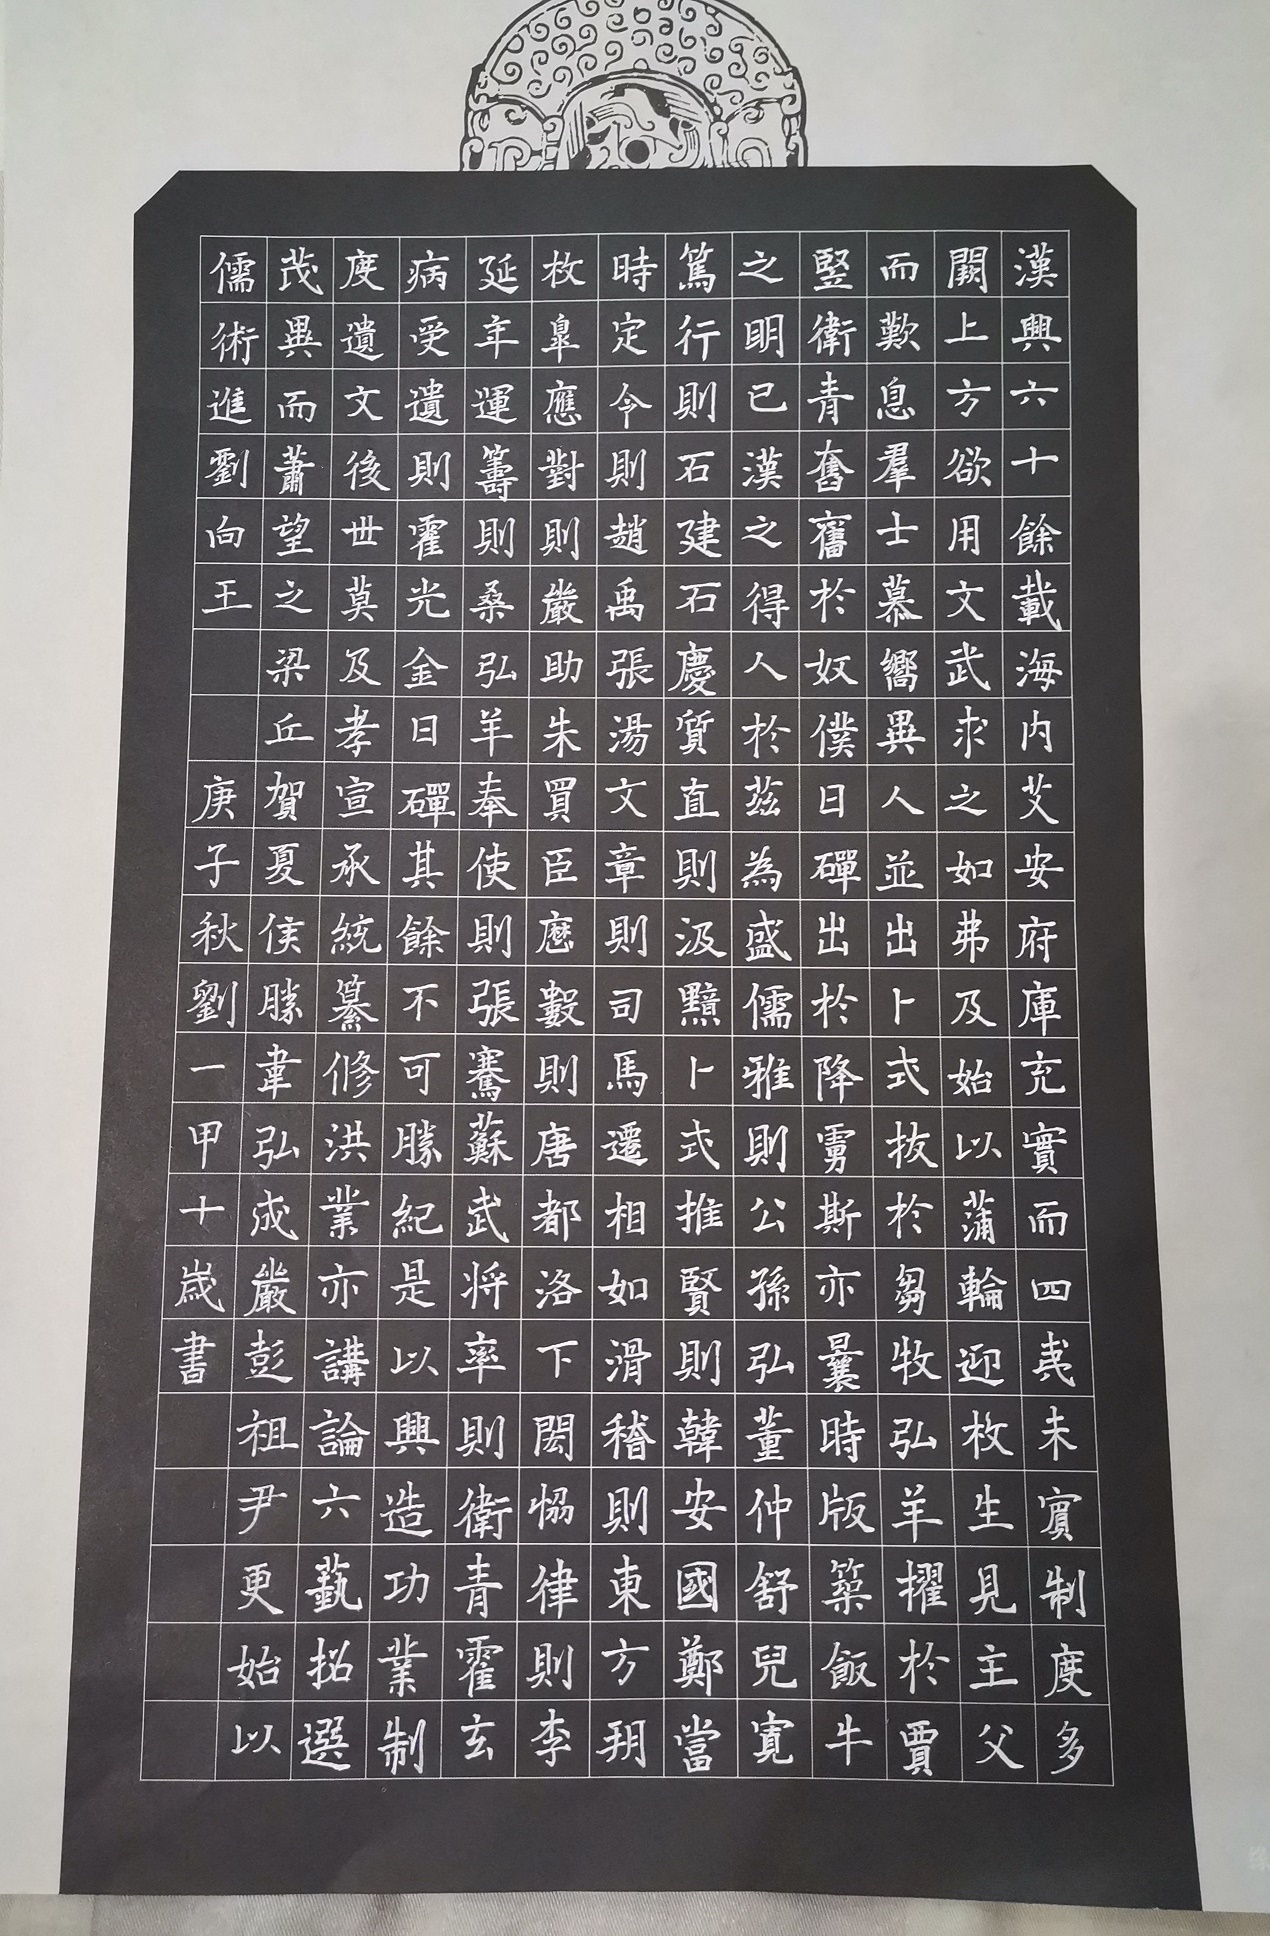 漢興六十餘載海内艾安府庫充實而四夷未賓制度多
闕上方欲用文武求之如弗及始以蒲輪迎枚生見主父
而歎息羣士慕嚮異人並出卜式拔於芻牧弘羊擢於賈
豎衛青奮於奴僕日磾出於降虜斯亦曩時版築飯牛
之明已漢之得人於茲為盛儒雅則公孫弘董仲舒兒寬
篤行則石建石慶質直則汲黯卜式推賢則韓安國鄭當
時定令則趙禹張湯文章則司馬遷相如滑稽則東方朔
枚臯應對則嚴助朱買臣歷數則唐都洛下閎恊律則李
延年運籌則桑弘羊奉使則張騫蘇武将率則衛青霍玄
病受遺則霍光金日磾其餘不可勝紀是以興造功業制
度遺文後世莫及孝宣承統纂修洪業亦講論六藝招選
茂異而蕭望之梁丘賀夏侯勝韋弘成嚴彭祖尹更始以
儒術進劉向王
庚子秋劉一甲十歲書